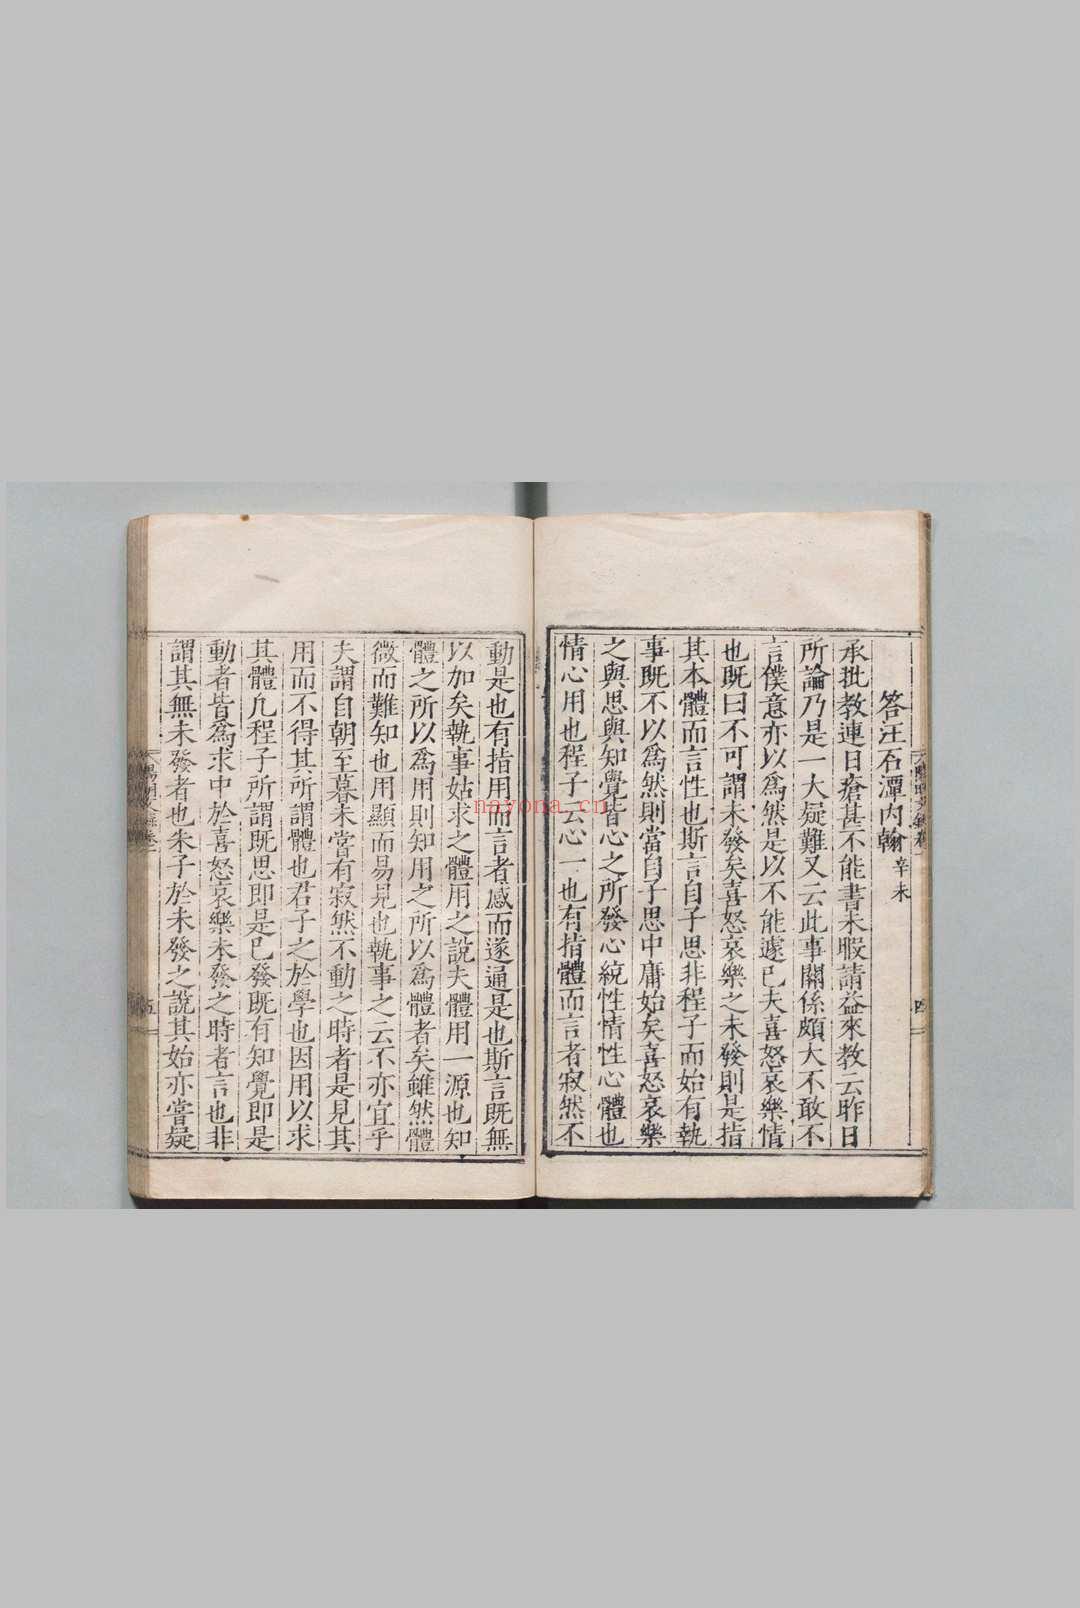 答汪石潭內翰 辛未
承批教連日瘡甚不能書未暇請益來教云昨日
所論乃是一大疑難又云此事關係頗大不敢不
言僕意亦以爲然是以不能遽已夫喜怒哀樂情
也既曰不可謂未發矣喜怒哀樂之未發則是指
其本體而言性也斯言自子思非程子而始有執
事既不以爲然則當自子思中庸始矣喜怒哀樂
之與思與知覺皆心之所發心統性情性心體也
情心用也程子云心一也有指體而言者寂然不
四
動是也有指用而言者感而遂通是也斯言既無
以加矣執事姑求之體用之說夫體用一源也知
體之所以爲用則知用之所以爲體者矣雖然體
微而難知也用顯而易見也執事之云不亦宜乎
夫謂自朝至暮未嘗有寂然不動之時者是見其
用而不得其所謂體也君子之於學也因用以求
其體凡程子所謂既思即是已發既有知覺即是
動者皆爲求中於喜怒哀樂未發之時者言也非
謂其無未發者也朱子於未發之說其始亦嘗疑
陽明文錄卷一
五
nayona.cn